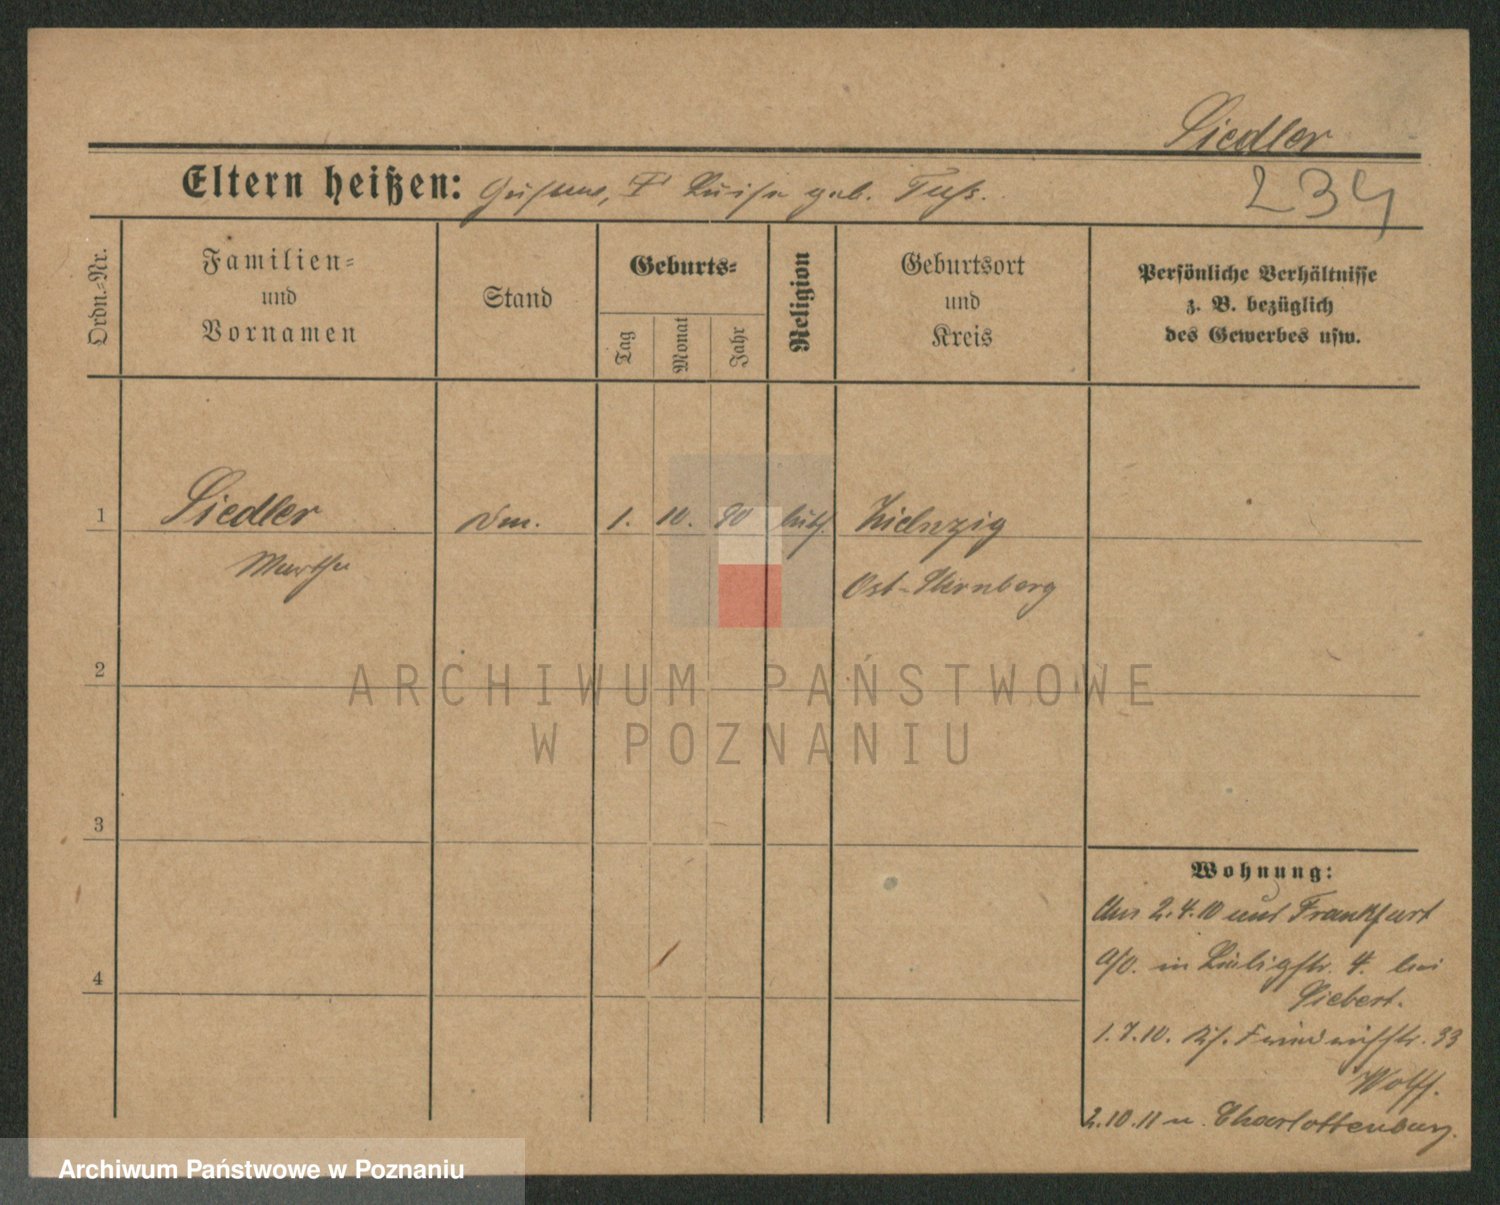 Siedler
Eltern heißen: Gustav, Luise geb.
234
Ordn.-Nr.
Familien-
und
Vornamen
Stand
Geburts-
Tag
Monat
Jahr
Religion
Geburtsort
und
Kreis
Persönliche Verhältnisse
z. B. bezüglich
des Gewerbes usw.
1
Siedler
1. 10. 90
Zielenzig
Martha
Ost-Sternberg
2
ARCHIWUM PAŃSTWOWE
W POZNANIU
3
Wohnung:
2.4.10 aus Frankfurt
a/O. in 4. bei
Siebert.
4
1.7.10. 33
Wolff.
2.10.11 n. Charlottenburg.
Archiwum Państwowe w Poznaniu